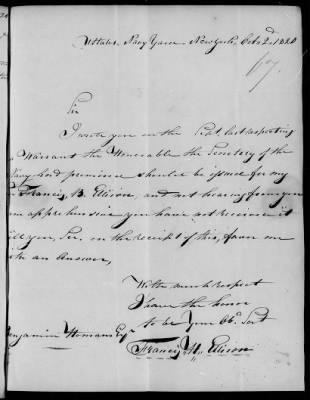 UStates Navy Yard New York, Octo. 2d. 1820
67.
Sir
I wrote you on the last, respecting
a Warrant the Honorable the Secretary of the
Navy had promised should be issued for my
Son Francis, B. Ellison, and not hearing from you
am apprehensive you have not received it
Will you, Sir, on the receipt of this, favor me
with an Answer,
With much respect
I have the honor
to be Your Ob. Servt
Benjamin Homans Esqr
Francis H. Ellison